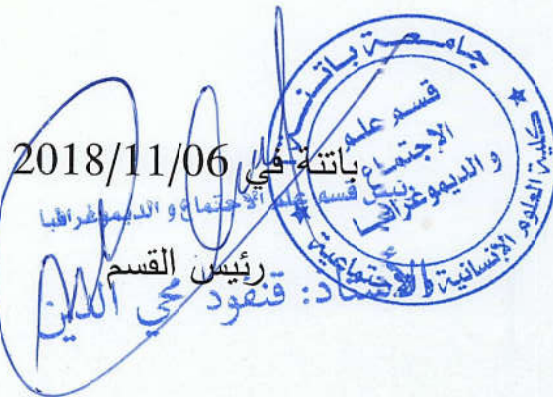 جامعة باتنة
كلية العلوم الإنسانية والاجتماعية
قسم علم
الاجتماع
و الديموغرافيا
باتنة في 2018/11/06
رئيس قسم علم الاجتماع و الديموغرافيا
رئيس القسم
الأستاذ: قنفود محي الدين